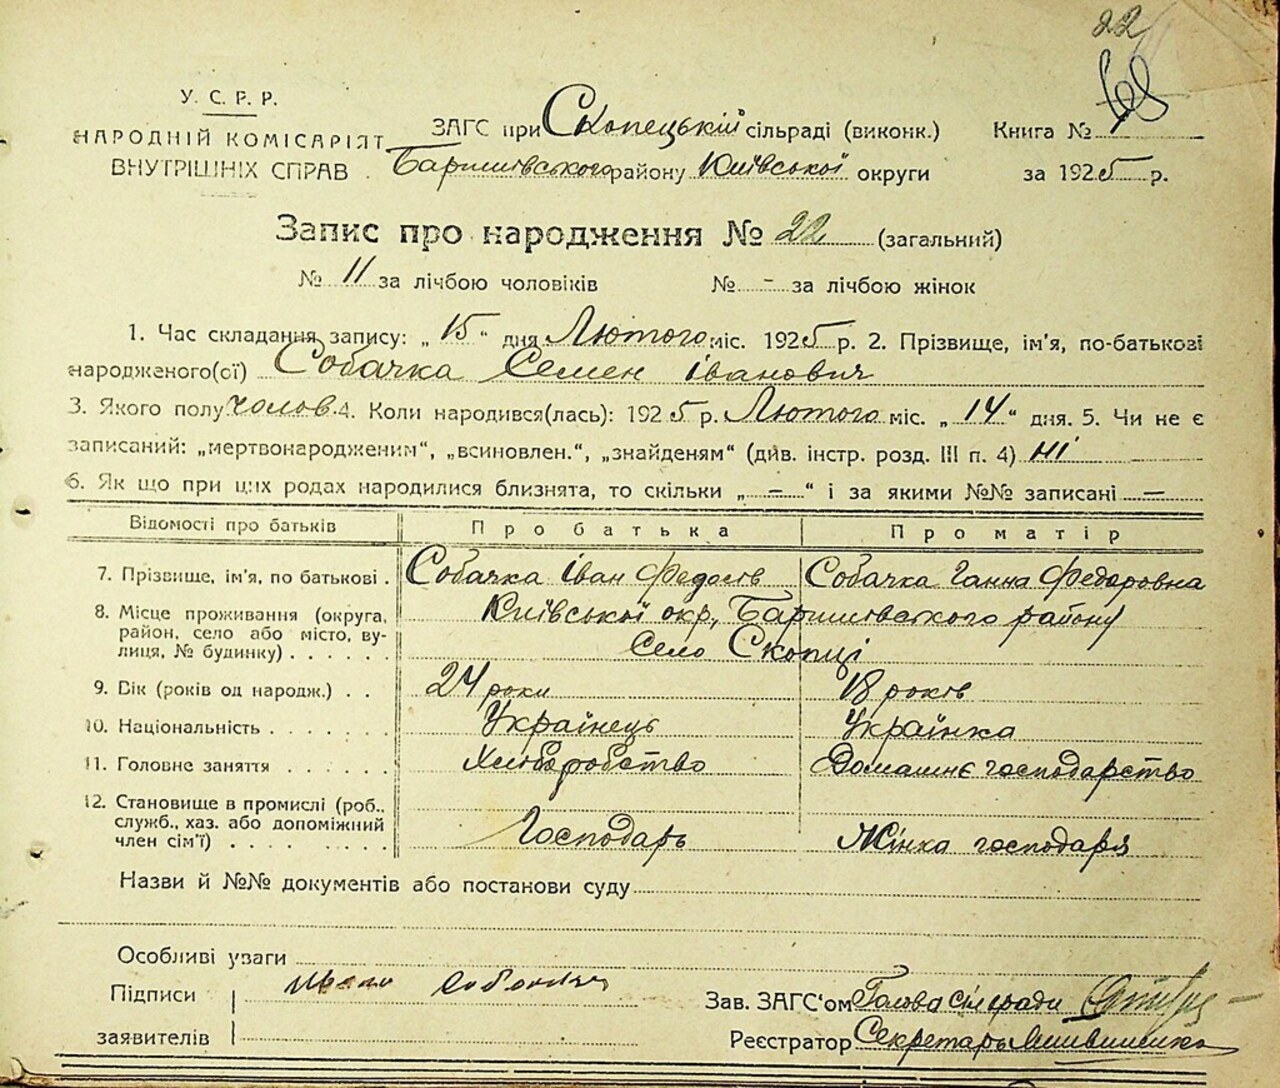 22
У. С. Р. Р.
НАРОДНІЙ КОМІСАРІЯТ
ВНУТРІШНІХ СПРАВ
ЗАГС при Скопецькій сільраді (виконк.) Книга № 1
Баришівського району Київської округи за 1925 р.
Запис про народження № 22 (загальний)
№ 11 за лічбою чоловіків № - за лічбою жінок
1. Час складання запису: „15“ дня Лютого міс. 1925 р. 2. Прізвище, ім'я, по-батькові
народженого(ої) Собачка Семен Іванович
3. Якого полу чолов. 4. Коли народився(лась): 1925 р. Лютого міс. „14“ дня. 5. Чи не є
записаний: „мертвонародженим“, „всиновлен.“, „знайденям“ (див. інстр. розд. III п. 4) ні
6. Як що при цих родах народилися близнята, то скільки „—“ і за якими №№ записані —
Відомості про батьків Про батька Про матір
7. Прізвище, ім'я, по батькові. Собачка Іван Федосів Собачка Ганна Федоровна
8. Місце проживання (округа, Київської окр., Баришівского району
район, село або місто, ву-
лиця, № будинку) . . . . . . Село Скопці
9. Вік (років од народж.) . . 24 роки 18 років
10. Національність . . . . . . . Українець Українка
11. Головне заняття . . . . . . Хліборобство Домашнє господарство
12. Становище в промислі (роб.,
служб., хаз. або допоміжний
член сім'ї) . . . . . . . Господарь Жінка господаря
Назви й №№ документів або постанови суду
Особливі уваги
Підписи
заявителів
Зав. ЗАГС'ом Голова сільради
Реєстратор Секретарь